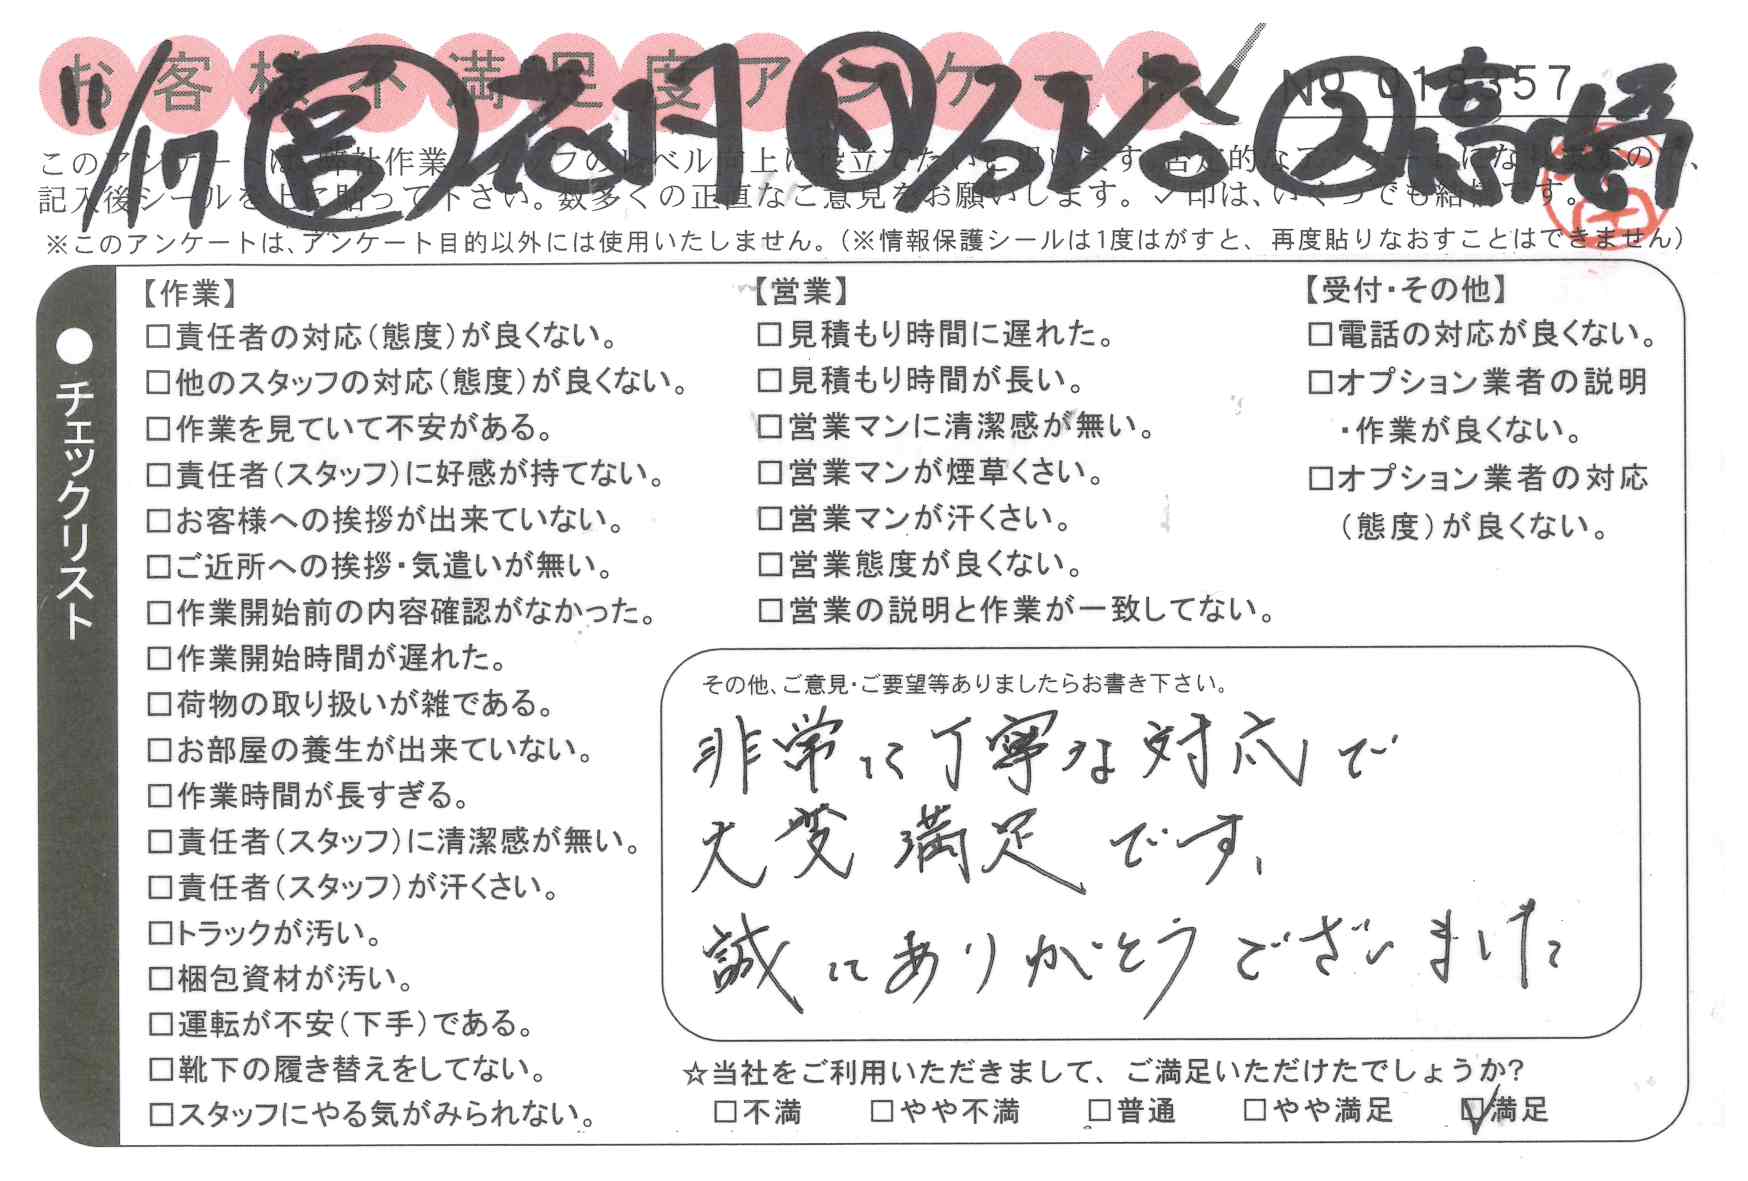 お客様不満足度アンケート
No 018357
11/17
営
ト
2
高崎
このアンケートは、弊社作業スタッフのレベル向上に役立てたいと思います。否定的なアンケートになりますので、
記入後シールを上に貼って下さい。数多くの正直なご意見をお願いします。✓印は、いくつでも結構です。
※このアンケートは、アンケート目的以外には使用いたしません。(※情報保護シールは1度はがすと、再度貼りなおすことはできません)
●チェックリスト
【作業】
□責任者の対応(態度)が良くない。
□他のスタッフの対応(態度)が良くない。
□作業を見ていて不安がある。
□責任者(スタッフ)に好感が持てない。
□お客様への挨拶が出来ていない。
□ご近所への挨拶・気遣いが無い。
□作業開始前の内容確認がなかった。
□作業開始時間が遅れた。
□荷物の取り扱いが雑である。
□お部屋の養生が出来ていない。
□作業時間が長すぎる。
□責任者(スタッフ)に清潔感が無い。
□責任者(スタッフ)が汗くさい。
□トラックが汚い。
□梱包資材が汚い。
□運転が不安(下手)である。
□靴下の履き替えをしてない。
□スタッフにやる気がみられない。
【営業】
□見積もり時間に遅れた。
□見積もり時間が長い。
□営業マンに清潔感が無い。
□営業マンが煙草くさい。
□営業マンが汗くさい。
□営業態度が良くない。
□営業の説明と作業が一致してない。
【受付・その他】
□電話の対応が良くない。
□オプション業者の説明
・作業が良くない。
□オプション業者の対応
(態度)が良くない。
その他、ご意見・ご要望等ありましたらお書き下さい。
非常に丁寧な対応で
大変満足です、
誠にありがとうございました
☆当社をご利用いただきまして、ご満足いただけたでしょうか?
□不満 □やや不満 □普通 □やや満足 ☑満足